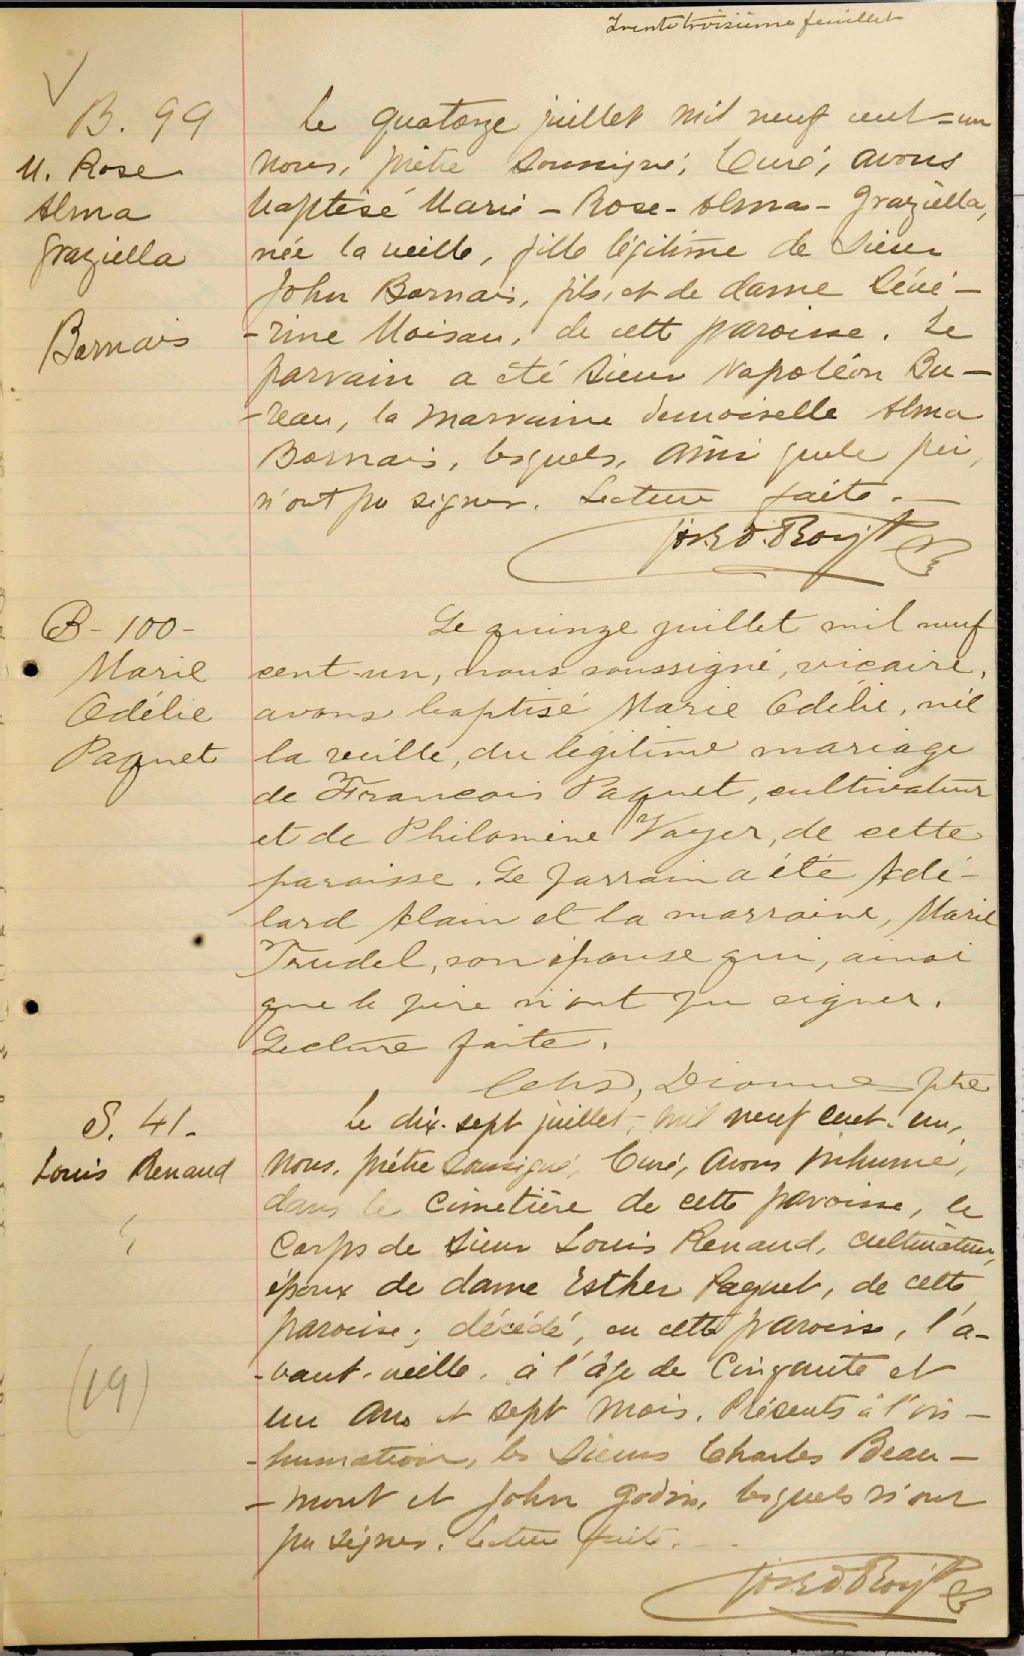 Trente troisième feuillet
B. 99
M. Rose
Alma
Graziella
Bornais
Le quatorze juillet mil neuf cent-un
nous, prêtre soussigné, Curé, avons
baptisé Marie-Rose-Alma-Graziella,
née la veille, fille légitime de Sieur
John Bornais, fils, et de dame Sévé-
-rine Moisan, de cette paroisse. Le
parrain a été Sieur Napoléon Bu-
-reau, la marraine demoiselle Alma
Bornais, lesquels, ainsi que le père,
n'ont pu signer. Lecture faite.
B-100-
Marie
Odélie
Paquet
Le quinze juillet mil neuf
cent-un, nous soussigné, vicaire,
avons baptisé Marie Odélie, née
la veille, du légitime mariage
de François Paquet, cultivateur
et de Philomène Voyer, de cette
paroisse. Le parrain a été Adé-
lard Alain et la marraine, Marie
Trudel, son épouse qui, ainsi
que le père n'ont pu signer.
Lecture faite.
Chs, Dionne ptre
S. 41.
Louis Renaud
(19)
Le dix-sept juillet, mil neuf cent-un,
nous, prêtre soussigné, Curé, avons inhumé,
dans le cimetière de cette paroisse, le
Corps de Sieur Louis Renaud, cultivateur,
époux de dame Esther Paquet, de cette
paroisse; décédé, en cette paroisse, l'a-
-vant-veille, à l'âge de Cinquante et
un ans et sept mois. Présents à l'in-
-humation, les Sieurs Charles Beau-
-mont et John Godin, lesquels n'ont
pu signer. Lecture faite.